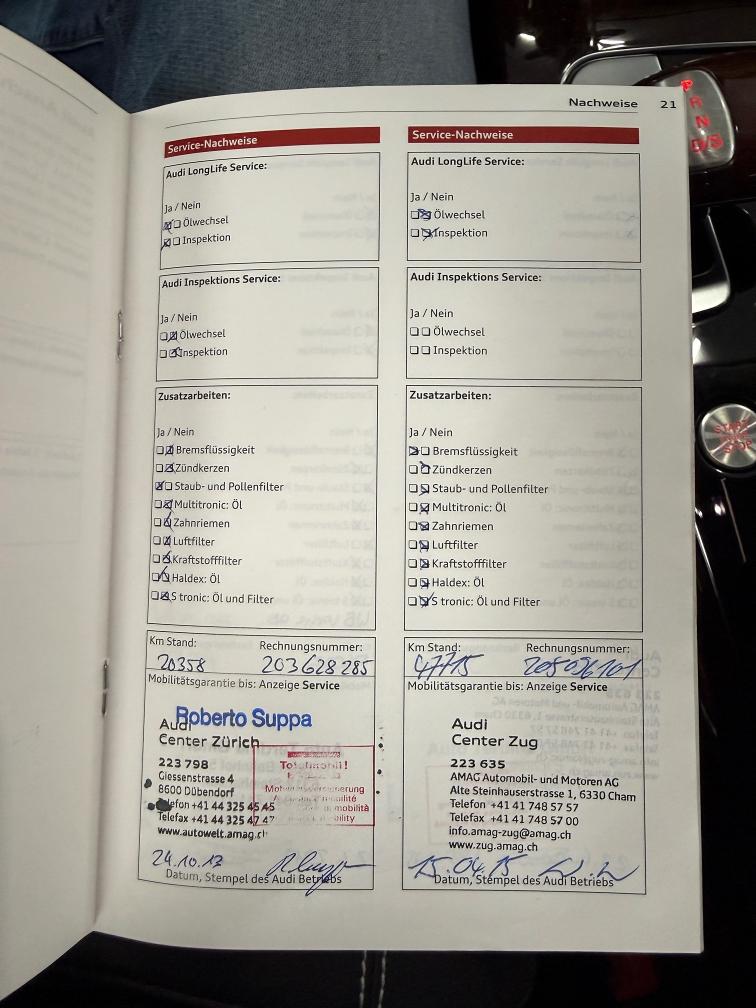 Nachweise 21
Service-Nachweise
Audi LongLife Service:
Ja / Nein
Ölwechsel
Inspektion
Audi Inspektions Service:
Ja / Nein
Ölwechsel
Inspektion
Zusatzarbeiten:
Ja / Nein
Bremsflüssigkeit
Zündkerzen
Staub- und Pollenfilter
Multitronic: Öl
Zahnriemen
Luftfilter
Kraftstofffilter
Haldex: Öl
S tronic: Öl und Filter
Km Stand: Rechnungsnummer:
20358 203628285
Mobilitätsgarantie bis: Anzeige Service
Roberto Suppa
Audi
Center Zürich
223 798
Giessenstrasse 4
8600 Dübendorf
Telefon +41 44 325 45 45
Telefax +44 44 325 47 47
www.autowelt.amag.ch
Totalmobil!
24.10.13
Datum, Stempel des Audi Betriebs
Service-Nachweise
Audi LongLife Service:
Ja / Nein
Ölwechsel
Inspektion
Audi Inspektions Service:
Ja / Nein
Ölwechsel
Inspektion
Zusatzarbeiten:
Ja / Nein
Bremsflüssigkeit
Zündkerzen
Staub- und Pollenfilter
Multitronic: Öl
Zahnriemen
Luftfilter
Kraftstofffilter
Haldex: Öl
S tronic: Öl und Filter
Km Stand: Rechnungsnummer:
47715
Mobilitätsgarantie bis: Anzeige Service
Audi
Center Zug
223 635
AMAG Automobil- und Motoren AG
Alte Steinhauserstrasse 1, 6330 Cham
Telefon +41 41 748 57 57
Telefax +41 41 748 57 00
info.amag-zug@amag.ch
www.zug.amag.ch
15.04.15
Datum, Stempel des Audi Betriebs
P
R
N
D/S
START
STOP